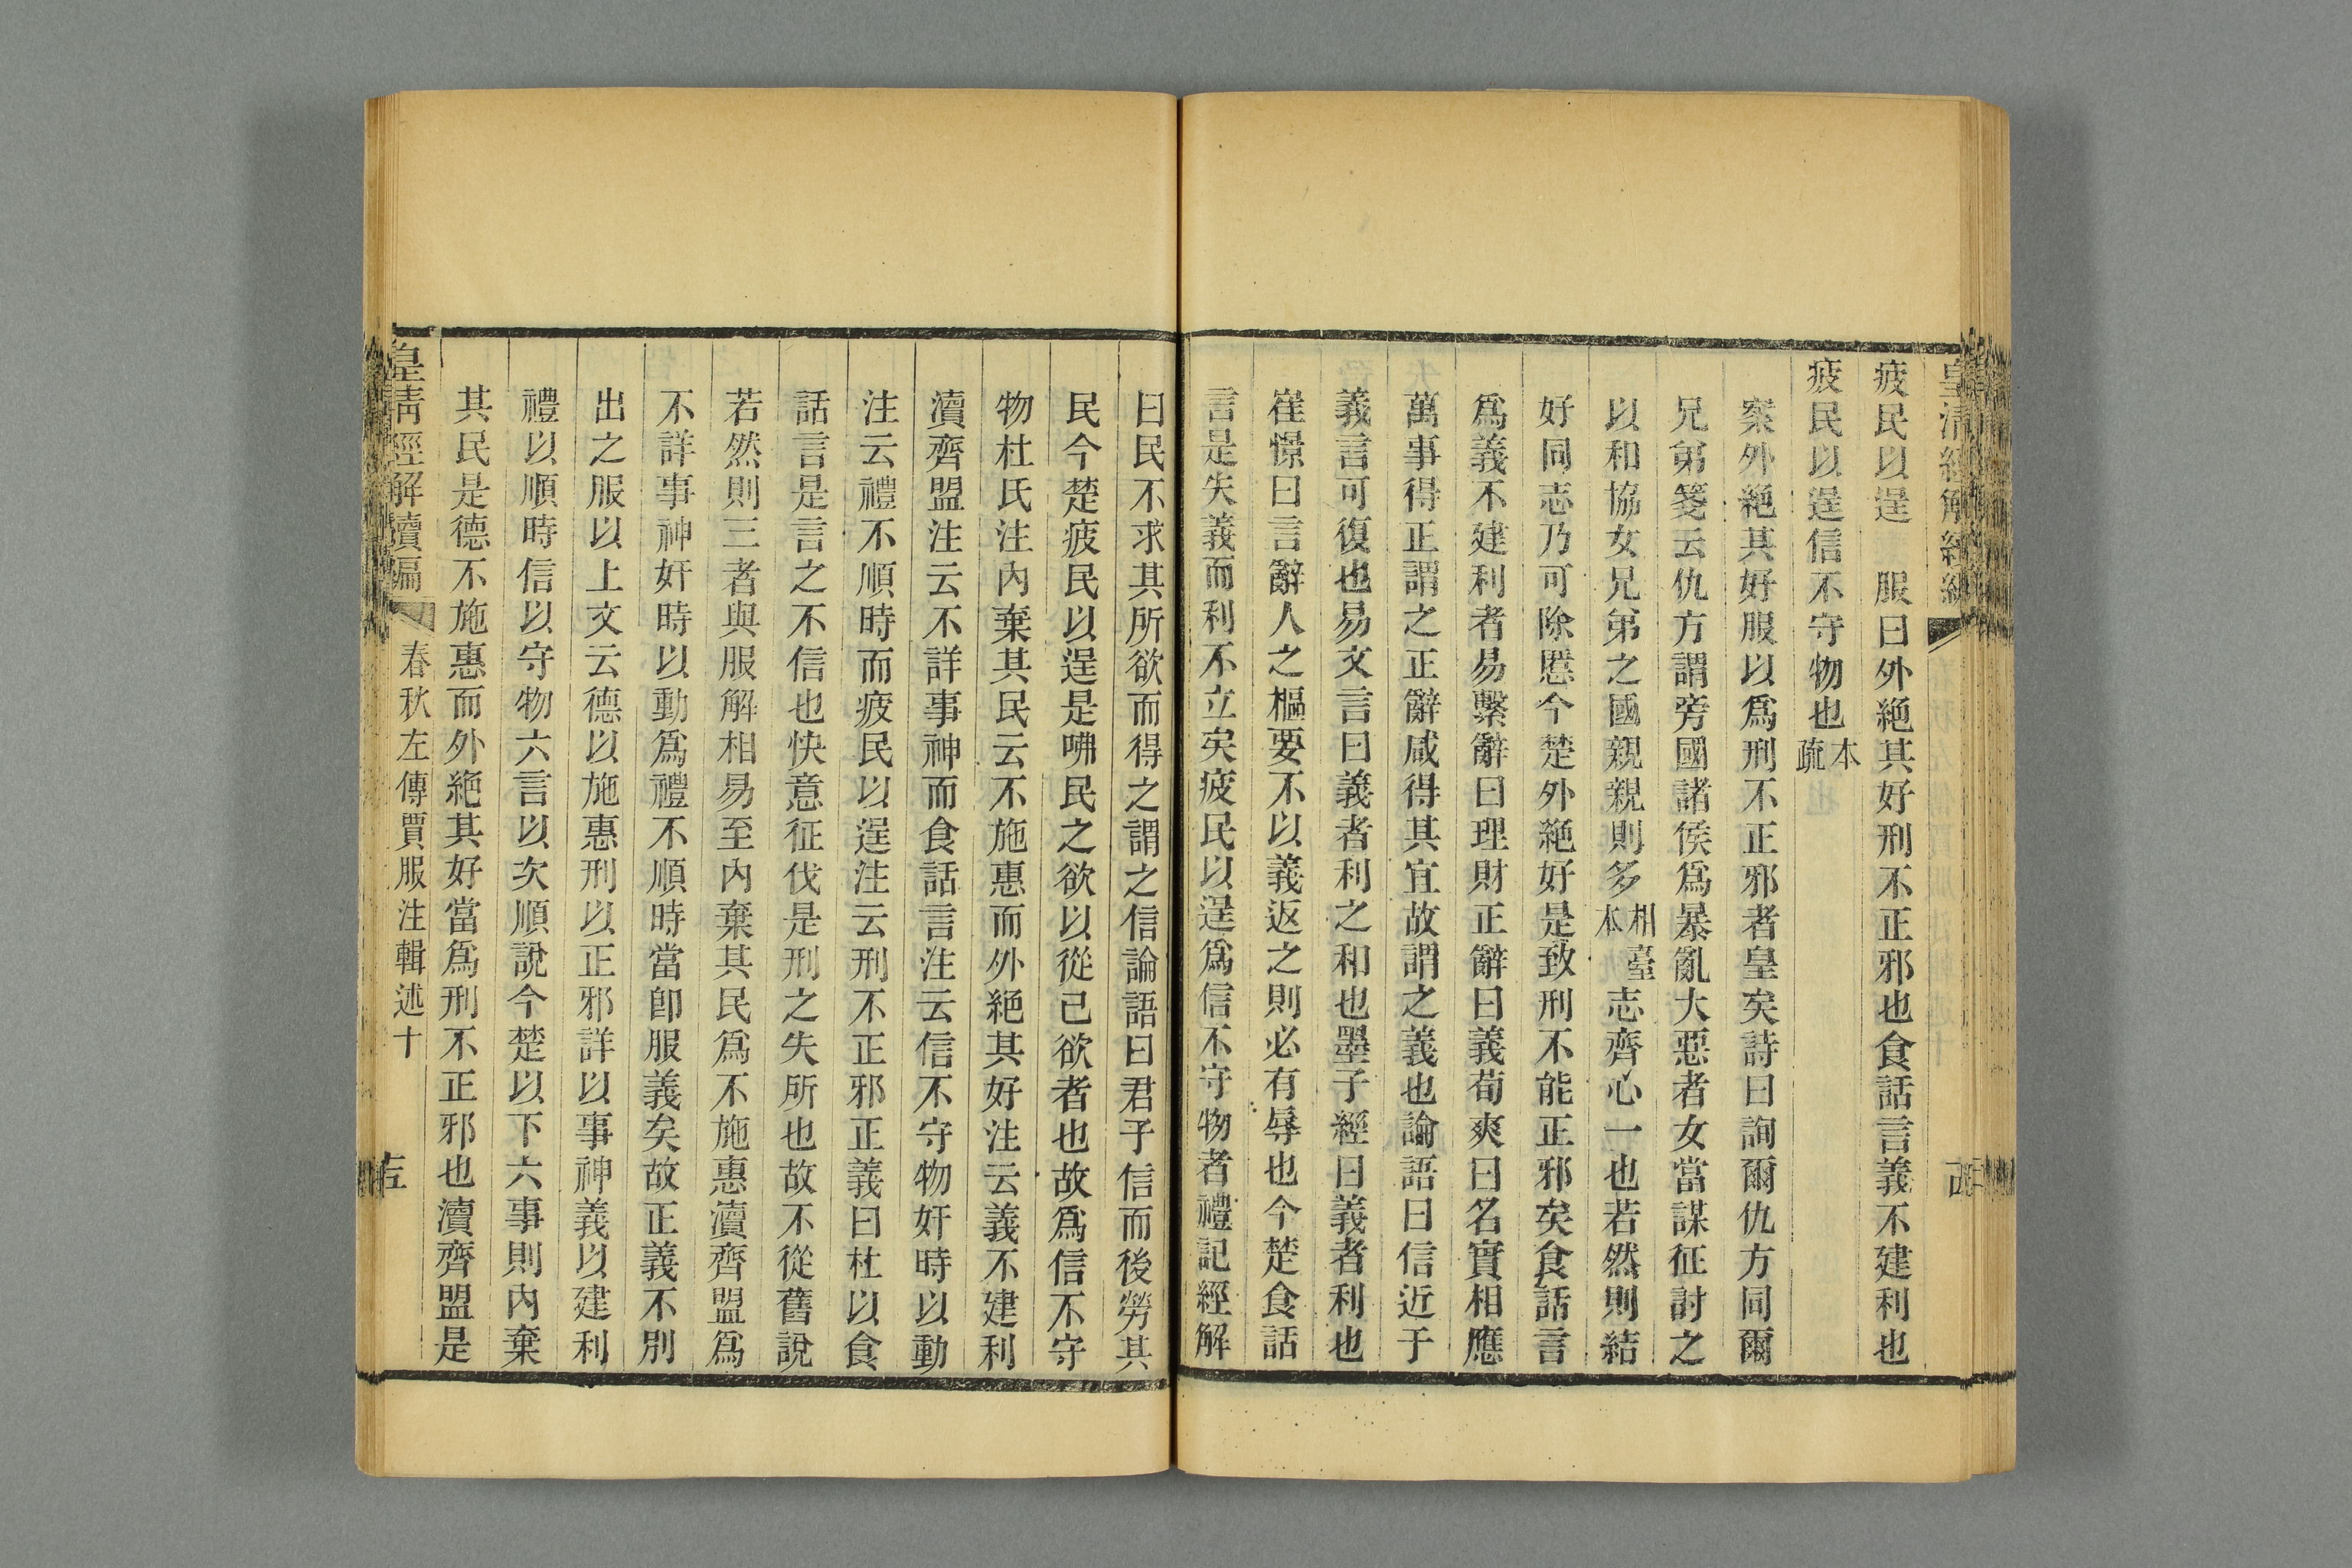 皇清經解續編
疲民以逞　服曰外絶其好刑不正邪也食話言義不建利也
疲民以逞信不守物也本疏
案外絶其好服以爲刑不正邪者皇矣詩曰詢爾仇方同爾
兄弟箋云仇方謂旁國諸侯爲暴亂大惡者女當謀征討之
以和協女兄弟之國親親則多相臺本志齊心一也若然則結
好同志乃可除慝今楚外絶好是致刑不能正邪矣食話言
爲義不建利者易繫辭曰理財正辭曰義荀爽曰名實相應
萬事得正謂之正辭咸得其宜故謂之義也論語曰信近于
義言可復也易文言曰義者利之和也墨子經曰義者利也
崔憬曰言辭人之樞要不以義返之則必有辱也今楚食話
言是失義而利不立矣疲民以逞爲信不守物者禮記經解
曰民不求其所欲而得之謂之信論語曰君子信而後勞其
民今楚疲民以逞是咈民之欲以從己欲者也故爲信不守
物杜氏注內棄其民云不施惠而外絶其好注云義不建利
瀆齊盟注云不詳事神而食話言注云信不守物奸時以動
注云禮不順時而疲民以逞注云刑不正邪正義曰杜以食
話言是言之不信也快意征伐是刑之失所也故不從舊說
若然則三者與服解相易至內棄其民爲不施惠瀆齊盟爲
不詳事神奸時以動爲禮不順時當卽服義矣故正義不別
出之服以上文云德以施惠刑以正邪詳以事神義以建利
禮以順時信以守物六言以次順說今楚以下六事則內棄
其民是德不施惠而外絶其好當爲刑不正邪也瀆齊盟是
皇清經解續編　春秋左傳賈服注輯述十